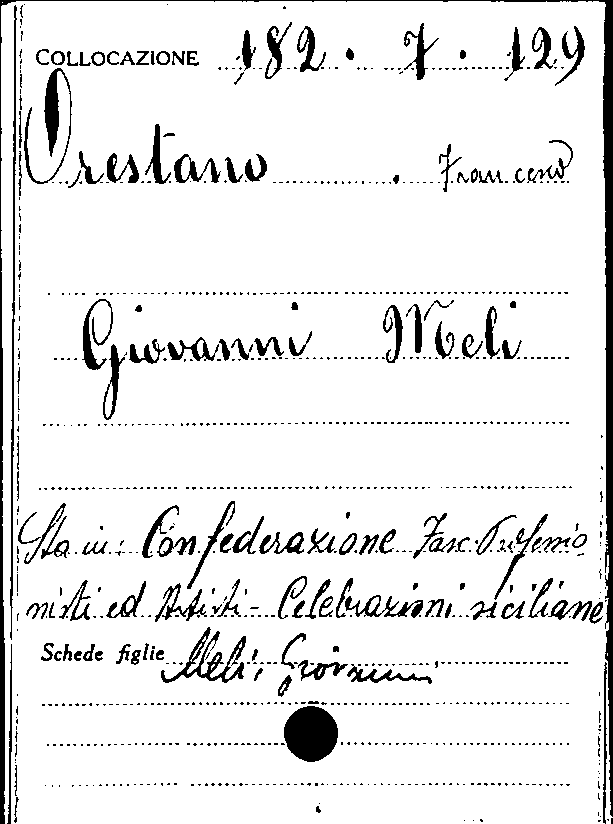 COLLOCAZIONE 182 . 7 . 129
Orestano . Francesco
Giovanni Meli
Sta in: Confederazione Fasc. Professio-
nisti ed Artisti - Celebrazioni siciliane
Schede figlie Meli, Giovanni